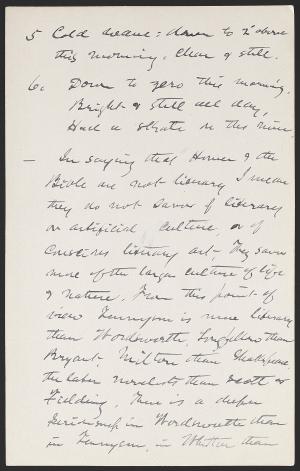 5 Cold wave: down to 2 above
this morning, clear & still.
6. Down to zero this morning.
Bright & still all day,
Had a skate on the river
— In saying that Homer & the
Bible are not literary I mean
they do not savor of literary
or artificial culture, or of
conscious literary art. They savor
more of the larger culture of life
& nature. From this point of
view Tennyson is more literary
than Wordsworth, Longfellow than
Bryant, Milton than Shakespeare,
the later novelists than Scott or
Fielding. There is a deeper
seriousness in Wordsworth than
in Tennyson, in Whittier than